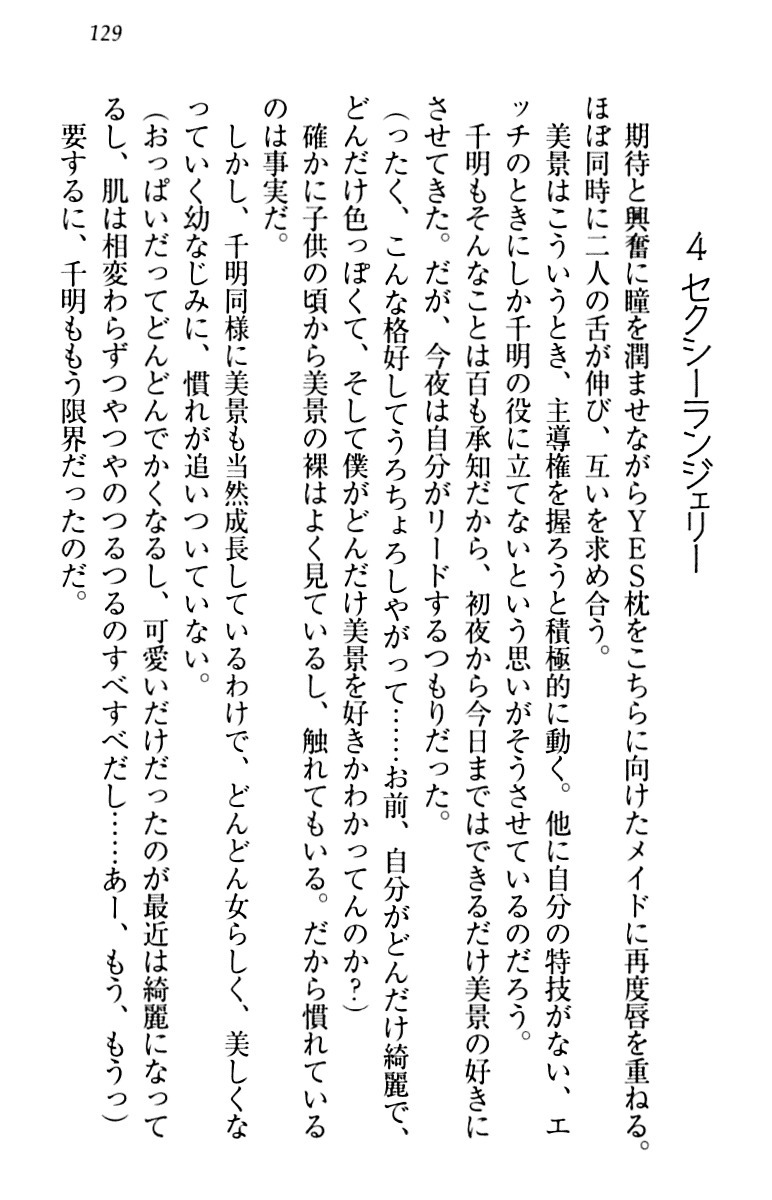 129
4 セクシーランジェリー
期待と興奮に瞳を潤ませながらYES枕をこちらに向けたメイドに再度唇を重ねる。
ほぼ同時に二人の舌が伸び、互いを求め合う。
美景はこういうとき、主導権を握ろうと積極的に動く。他に自分の特技がない、エ
ッチのときにしか千明の役に立てないという思いがそうさせているのだろう。
千明もそんなことは百も承知だから、初夜から今日まではできるだけ美景の好きに
させてきた。だが、今夜は自分がリードするつもりだった。
（ったく、こんな格好してうろちょろしやがって……お前、自分がどんだけ綺麗で、
どんだけ色っぽくて、そして僕がどんだけ美景を好きかわかってんのか？）
確かに子供の頃から美景の裸はよく見ているし、触れてもいる。だから慣れている
のは事実だ。
しかし、千明同様に美景も当然成長しているわけで、どんどん女らしく、美しくな
っていく幼なじみに、慣れが追いついていない。
（おっぱいだってどんどんでかくなるし、可愛いだけだったのが最近は綺麗になって
るし、肌は相変わらずつやつやのつるつるのすべすべだし……あー、もう、もうっ）
要するに、千明ももう限界だったのだ。